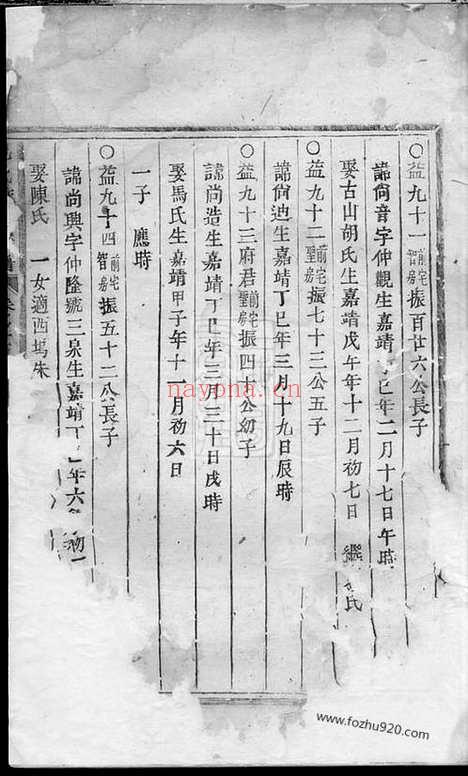 ○益九十一前宅智房振百廿六公長子
諱尙音字仲觀生嘉靖丁巳年二月十七日午時
娶古山胡氏生嘉靖戊午年十二月初七日 繼 氏
○益九十二前宅聖房振七十三公五子
諱尙迪生嘉靖丁巳年三月十九日辰時
○益九十三府君前宅聖房振四十公幼子
諱尚浩生嘉靖丁巳年三月三十日戌時
娶馬氏生嘉靖甲子年十一月初六日
一子 應時
○益九十四前宅智房振五十二公長子
諱尚興字仲隆號三泉生嘉靖丁 年六 初一
娶陳氏 一女適西塢朱
nayona.cn
www.fozhu920.com